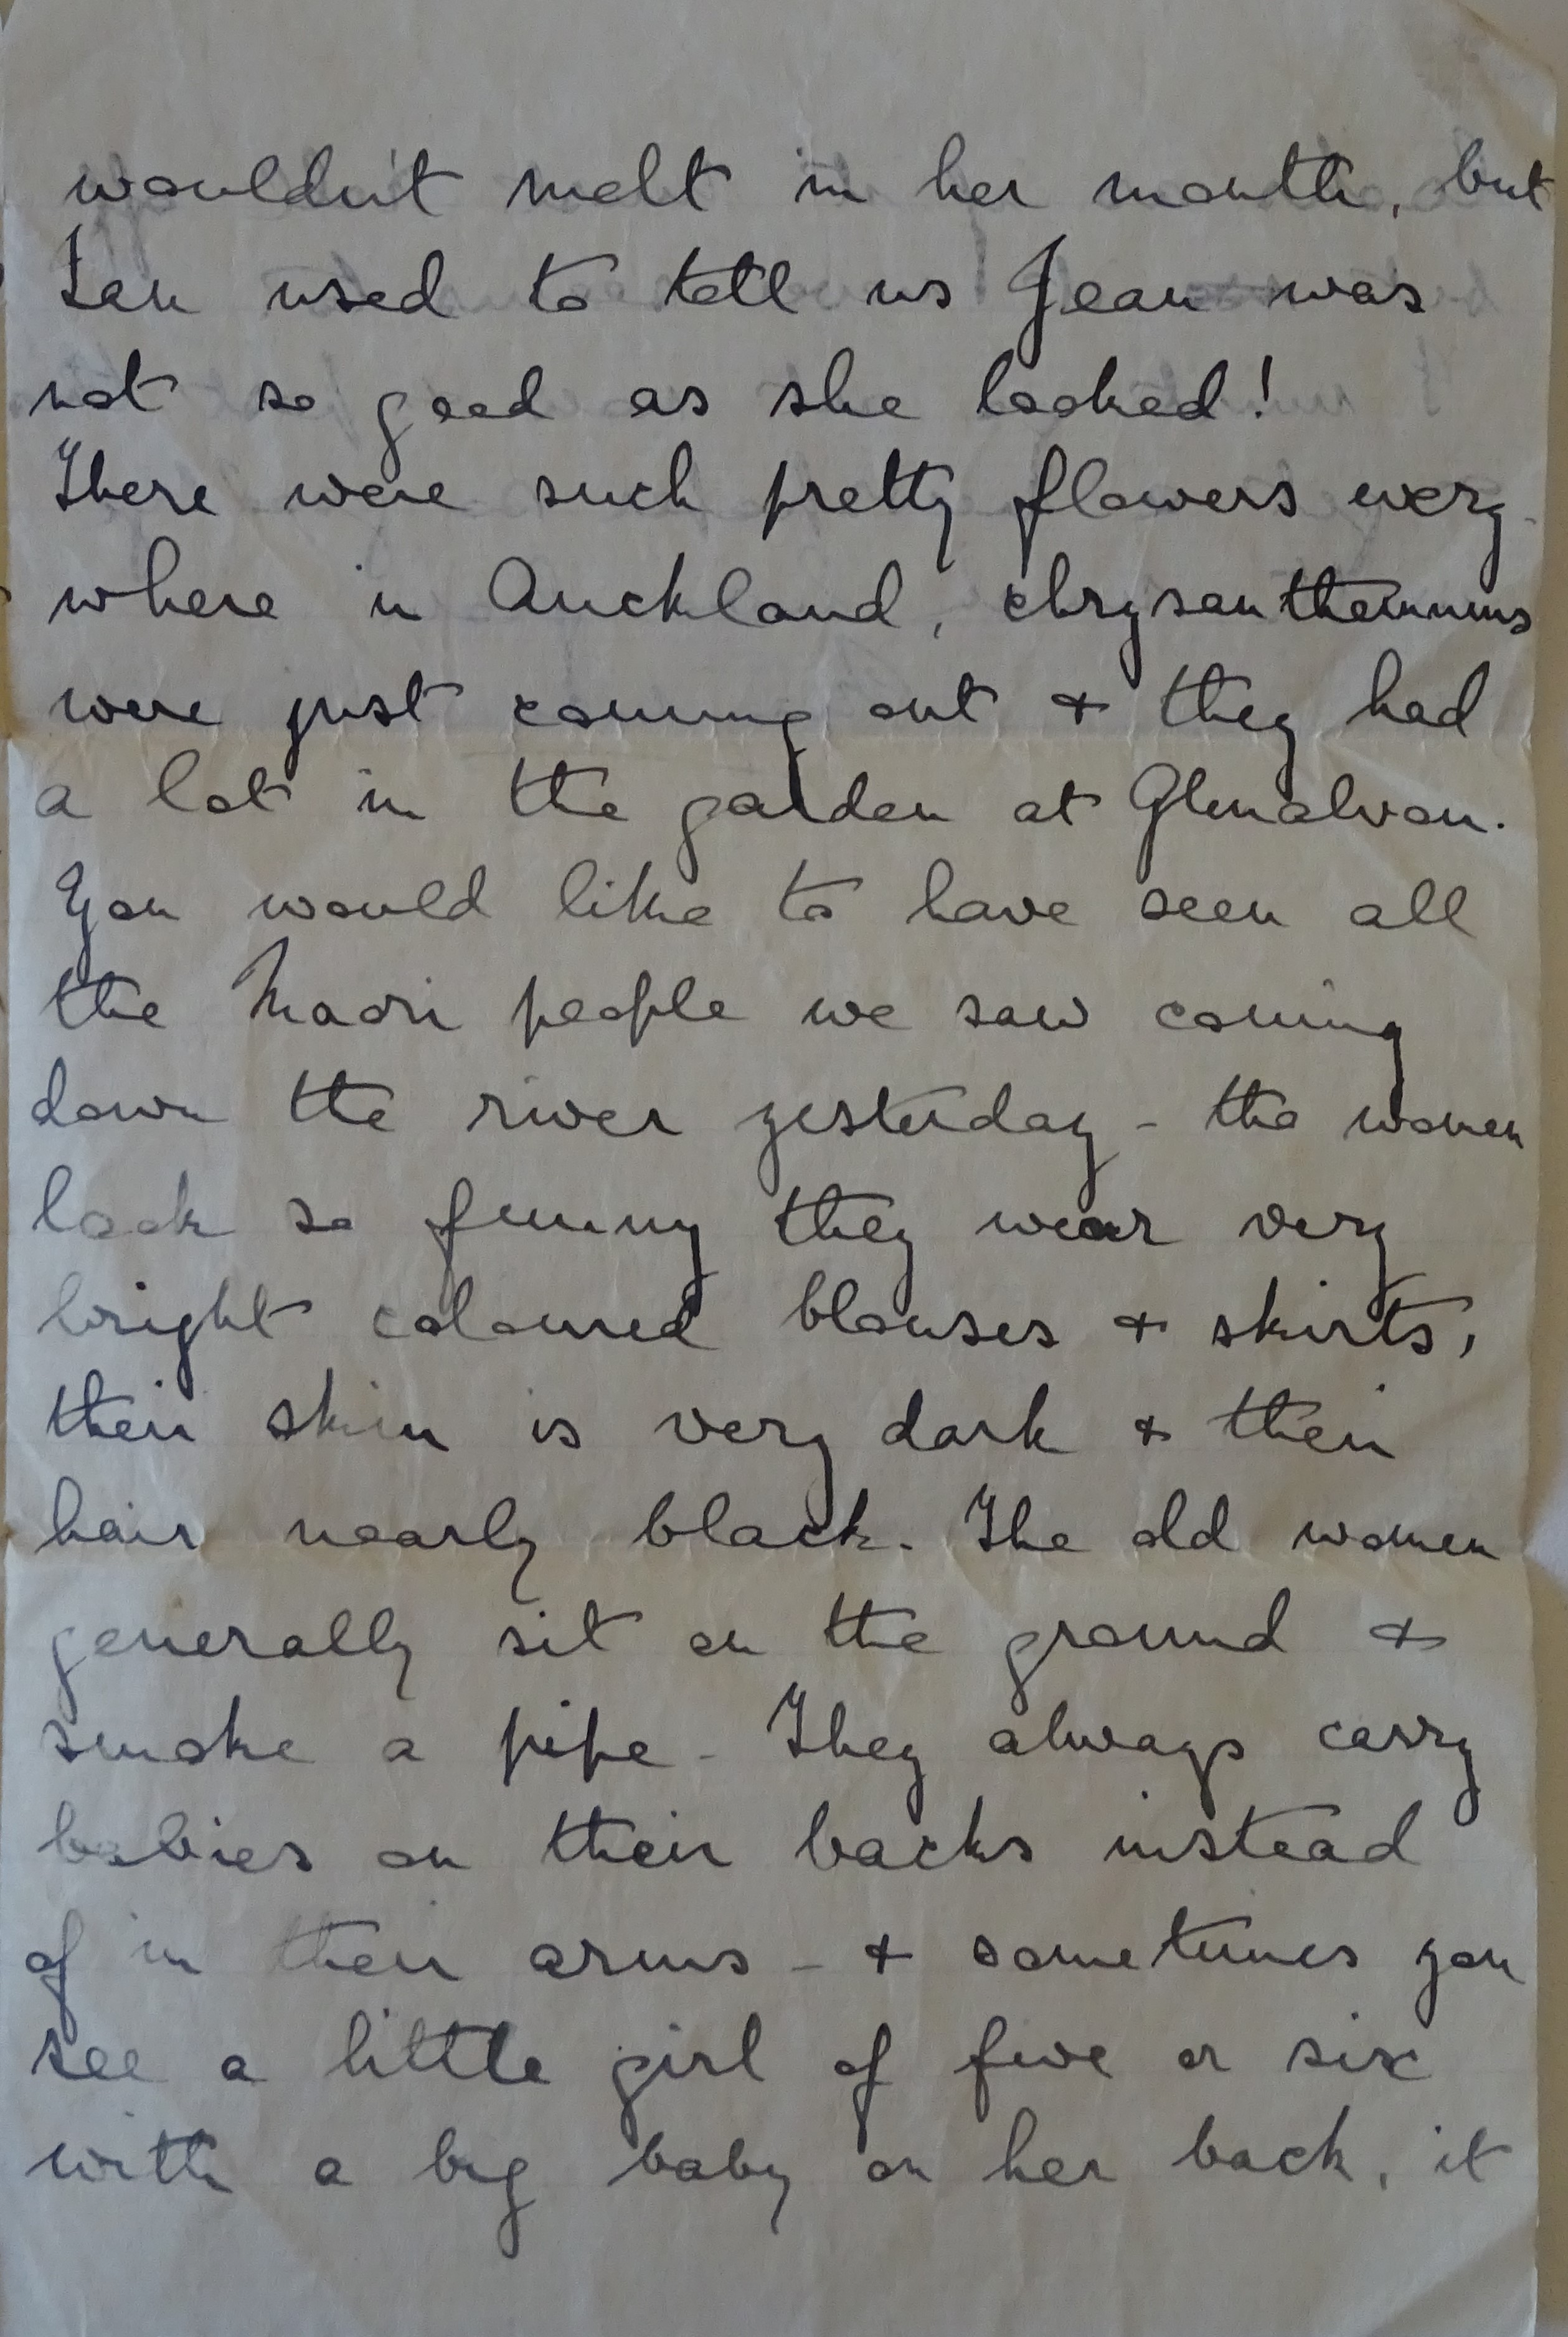 wouldn't melt in her mouth, but
Ian used to tell us Jean was
not so good as she looked!
There were such pretty flowers every-
where in Auckland, chrysanthemums
were just coming out & they had
a lot in the garden at Glenalvon.
You would like to have seen all
the Maori people we saw coming
down the river yesterday - the women
look so funny they wear very
bright coloured blouses & skirts,
their skin is very dark & their
hair nearly black. The old women
generally sit on the ground &
smoke a pipe - They always carry
babies on their backs instead
of in their arms - & sometimes you
see a little girl of five or six
with a big baby on her back, it